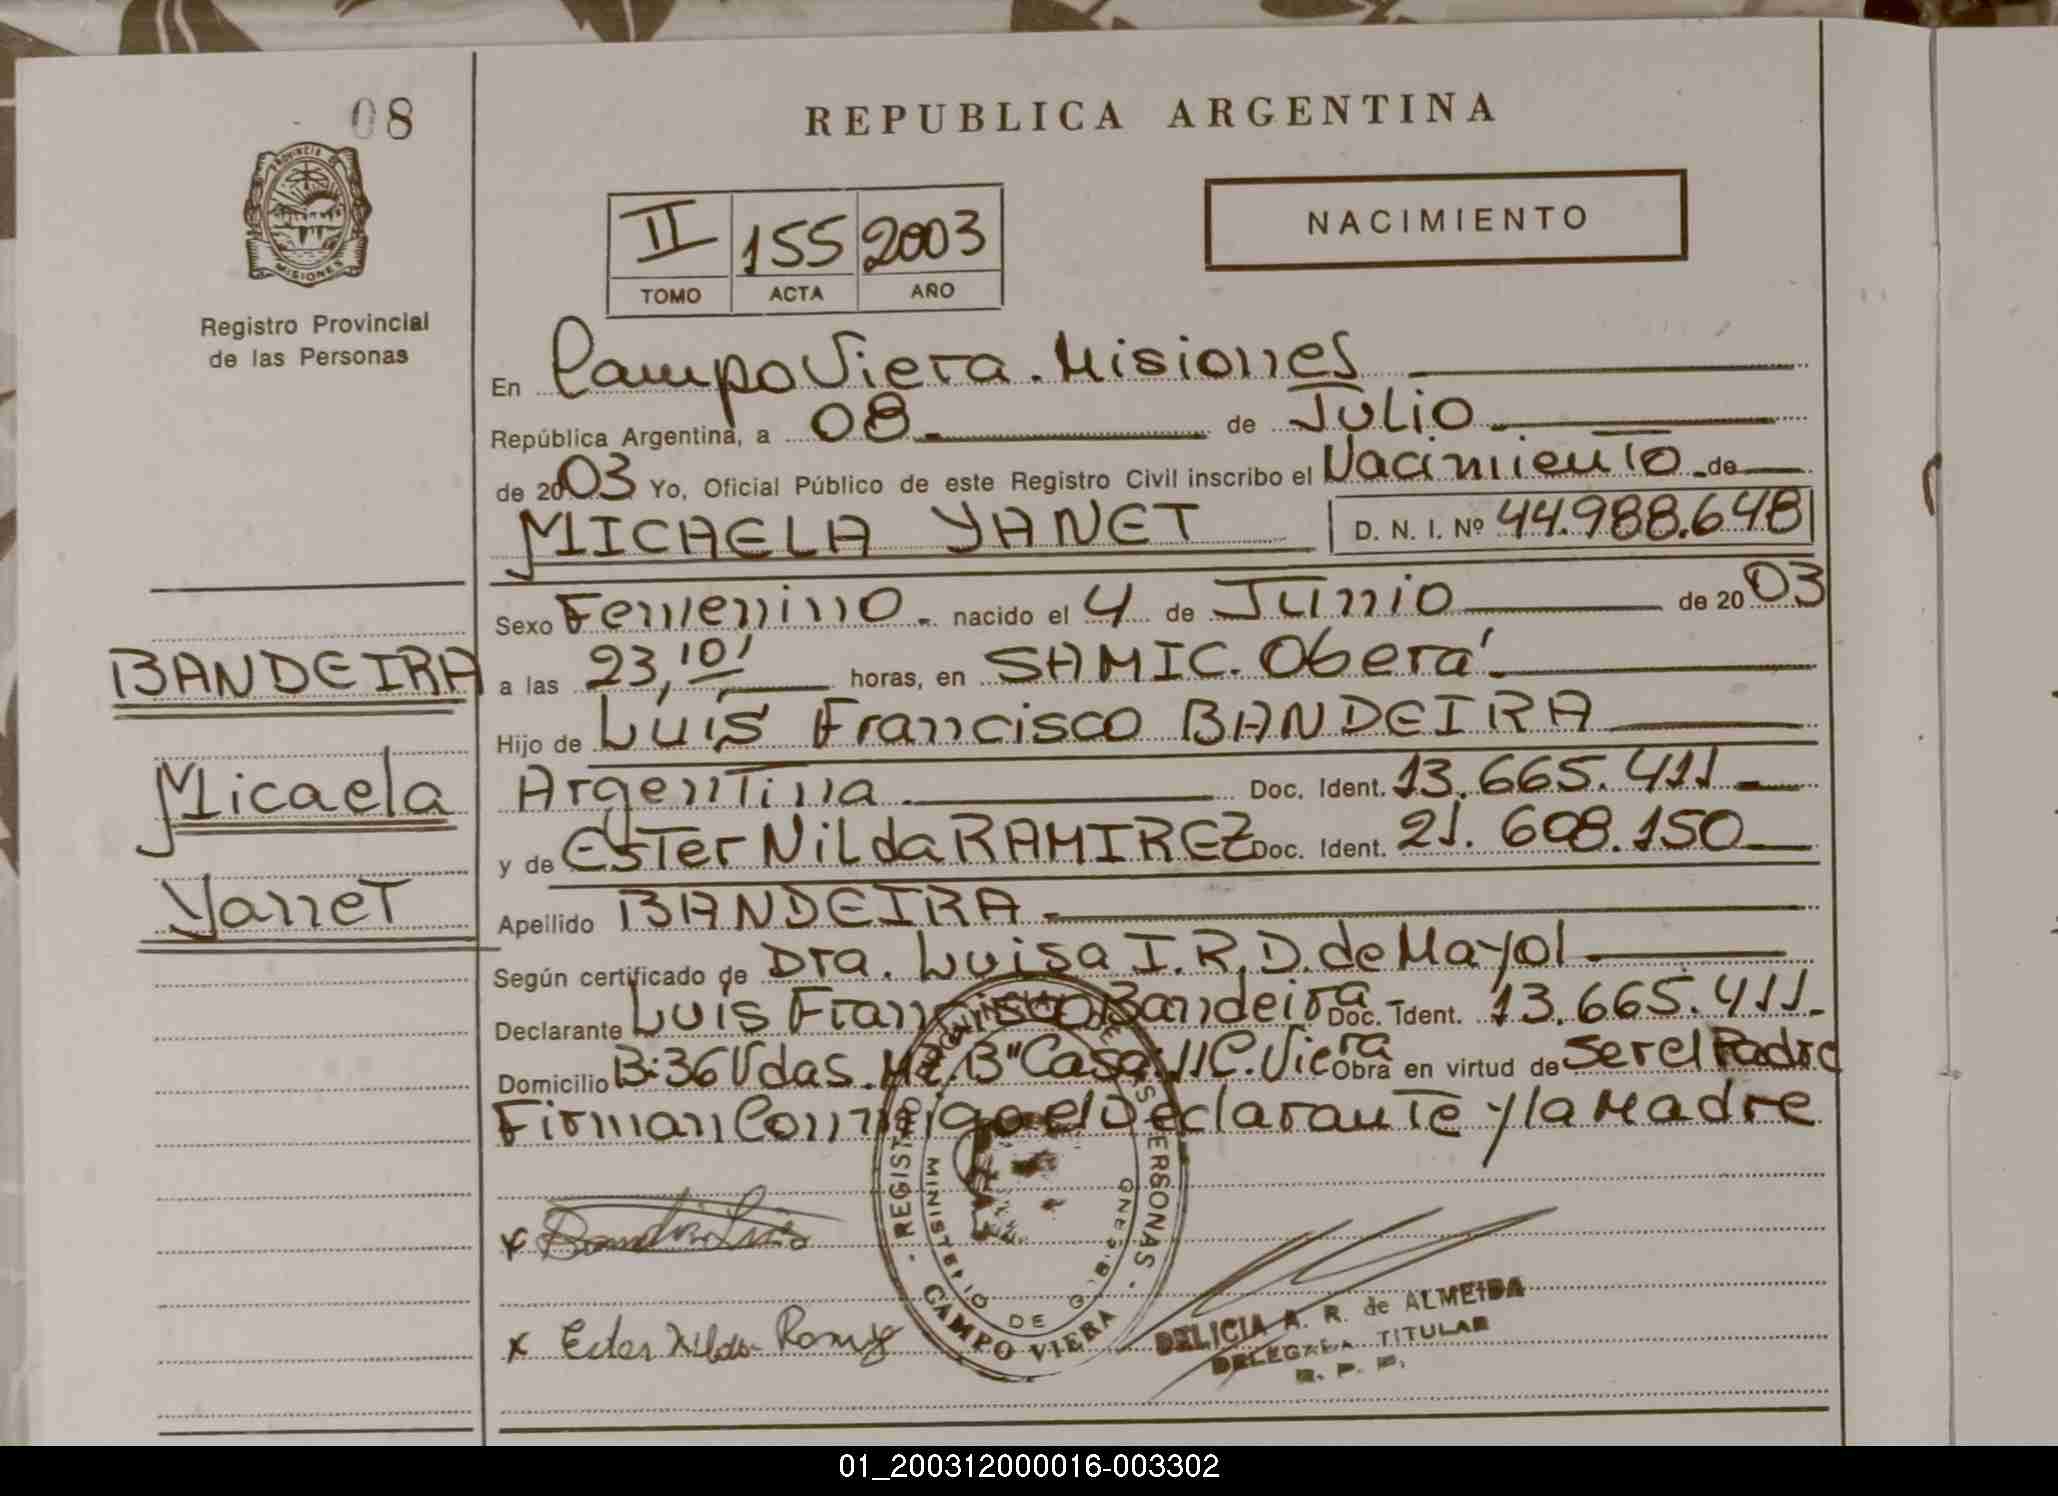 08
PROVINCIA DE
MISIONES
Registro Provincial
de las Personas
REPUBLICA ARGENTINA
II 155 2003
TOMO ACTA AÑO
NACIMIENTO
En Campo Viera. Misiones
República Argentina, a 08 de Julio
de 2003 Yo, Oficial Público de este Registro Civil inscribo el Nacimiento de
MICAELA YANET D. N. I. Nº 44.988.648
Sexo Femenino. nacido el 4 de Junio de 2003
BANDEIRA
a las 23,10' horas, en SAMIC. Oberá
Hijo de Luis Francisco BANDEIRA
Micaela
Argentina Doc. Ident. 13.665.411
y de Ester Nilda RAMIREZ Doc. Ident. 21.608.150
Yanet
Apellido BANDEIRA
Según certificado de Dra. Luisa I.R.D. de Mayol
Declarante Luis Francisco Bandeira Doc. Ident. 13.665.411
Domicilio B: 36 Vdas. Mz. B" Casa: 11 C. Viera Obra en virtud de ser el Padre
Firman Conmigo el Declarante y la Madre
x Bandeira Luis
x Ester Nilda Ramirez
MINISTERIO DE GOBIERNO
CAMPO VIERA
DELICIA A. R. de ALMEIDA
DELEGADA TITULAR
R. P. P.
01_200312000016-003302